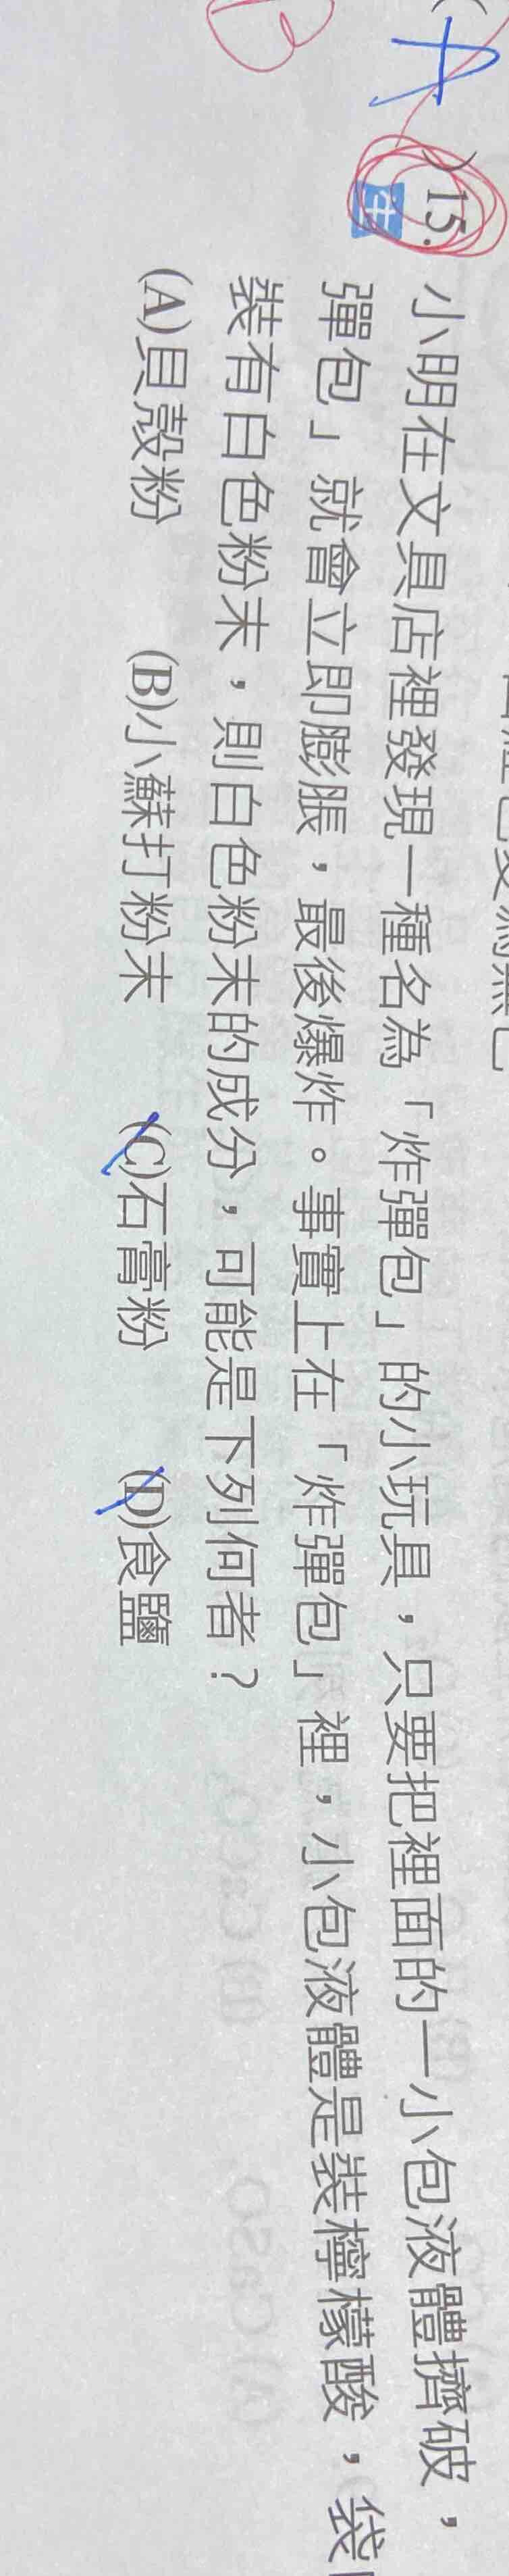 A )15. 小明在文具店裡發現一種名為「炸彈包」的小玩具,只要把裡面的一小包液體擠破,
彈包」就會立即膨脹,最後爆炸。事實上在「炸彈包」裡,小包液體是裝檸檬酸,袋
裝有白色粉末,則白色粉末的成分,可能是下列何者?
(A)貝殼粉 (B)小蘇打粉末 (C)石膏粉 (D)食鹽
B